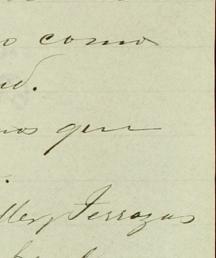 o como
ud.
nos que
lley Terrazas